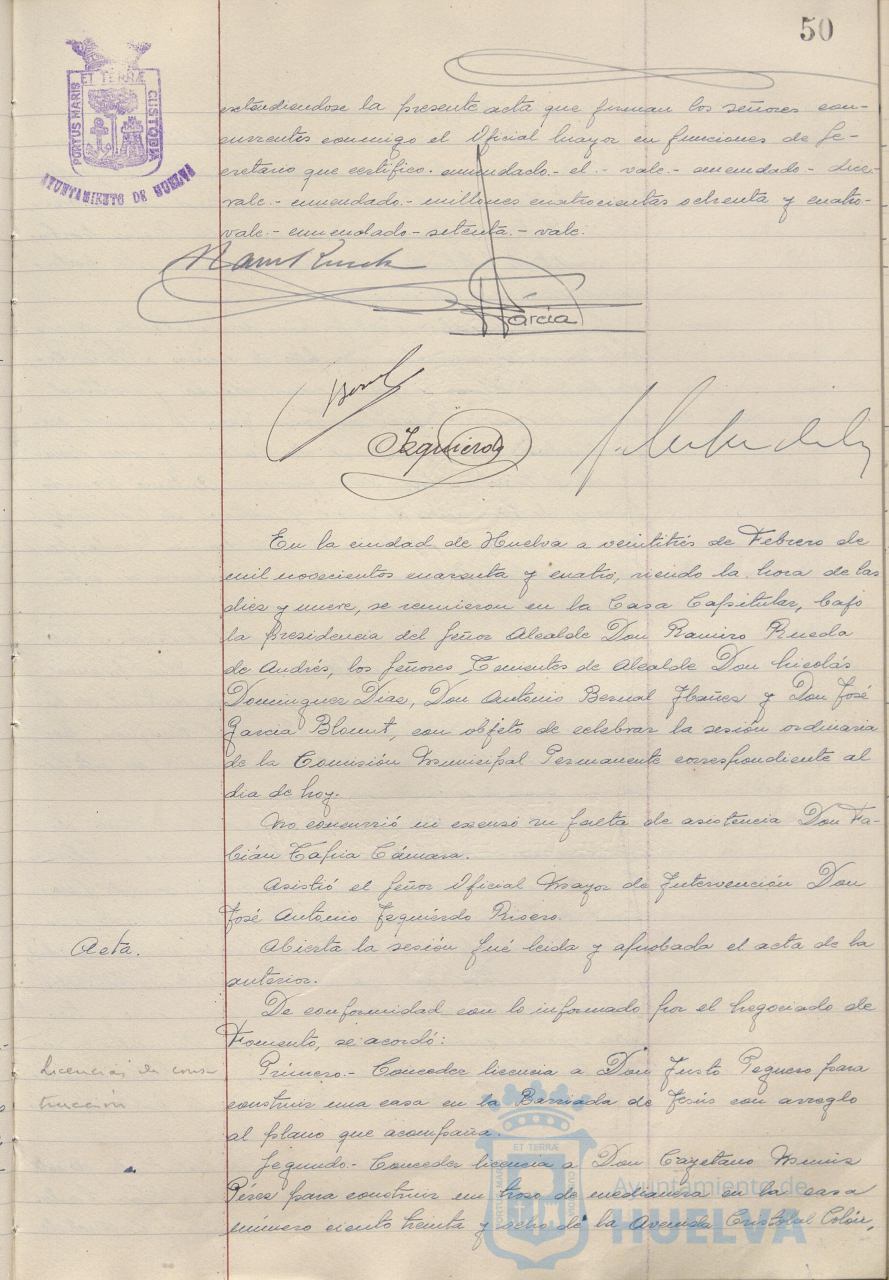 50
ET TERRÆ
PORTUS MARIS
CUSTODIA
AYUNTAMIENTO DE HUELVA
extendiendose la presente acta que firman los señores con-
currentes conmigo el Oficial Mayor en funciones de Se-
cretario que certifico. enmendado.- el.- vale.- enmendado.- dice-
vale.- enmendado.- millones cuatrocientas ochenta y cuatro-
vale.- enmendado.- setenta.- vale.
García
Izquierdo
En la ciudad de Huelva a veintitrés de Febrero de
mil novecientos cuarenta y cuatro, siendo la hora de las
diez y nueve, se reunieron en la Casa Capitular, bajo
la presidencia del Señor Alcalde Don Ramiro Rueda
de Andrés, los Señores Tenientes de Alcalde Don Nicolás
Dominguez Diaz, Don Antonio Bernal Ibañez y Don José
Garcia Blount, con objeto de celebrar la sesión ordinaria
de la Comisión Municipal Permanente correspondiente al
dia de hoy.
No concurrió ni excusó su falta de asistencia Don Fa-
bián Tapia Cámara.
Asistió el Señor Oficial Mayor de Intervención Don
José Antonio Izquierdo Risero.
Acta.
Abierta la sesión fué leida y aprobada el acta de la
anterior.
De conformidad con lo informado por el Negociado de
Fomento, se acordó:
Licencias de cons-
trucción
Primero.- Conceder licencia a Don Justo Peguero para
construir una casa en la Barriada de Jesús con arreglo
al plano que acompaña.
Segundo.- Conceder licencia a Don Cayetano Muniz
Pérez para construir un trozo de medianera en la casa
número ciento treinta y ocho de la Avenida Cristobal Colón,
Ayuntamiento de
HUELVA